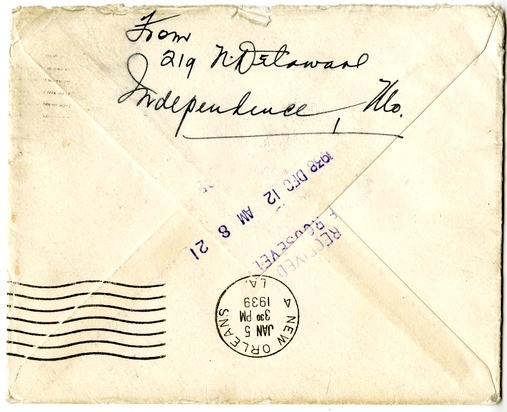 From
219 N. Delaware
Independence, Mo.
1938 DEC 12 AM 8 21
RECEIVED
ROOSEVELT
NEW ORLEANS
4
LA.
JAN 5
3 30 PM
1939